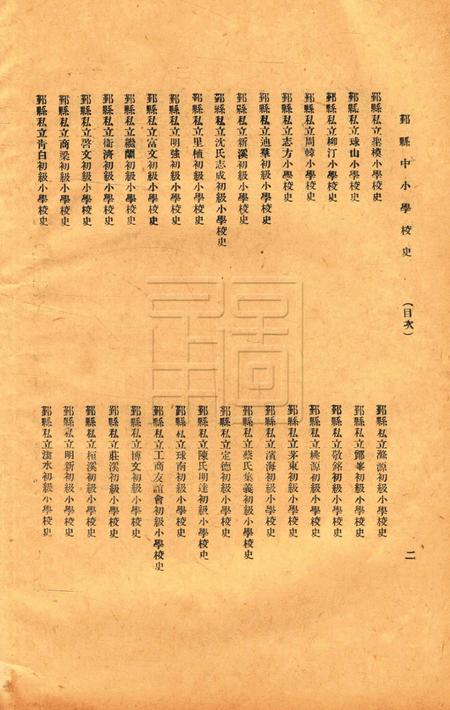 鄞縣中小學校史 (目次) 二
鄞縣私立模小學校史
鄞縣私立球山小學校史
鄞縣私立柳汀小學校史
鄞縣私立周韓小學校史
鄞縣私立志方小學校史
鄞縣私立迪華初級小學校史
鄞縣私立新溪初級小學校史
鄞縣私立沈氏志成初級小學校史
鄞縣私立里植初級小學校史
鄞縣私立明強初級小學校史
鄞縣私立富文初級小學校史
鄞縣私立繼蘭初級小學校史
鄞縣私立衞濟初級小學校史
鄞縣私立啓文初級小學校史
鄞縣私立商梁初級小學校史
鄞縣私立青白初級小學校史
鄞縣私立源初級小學校史
鄞縣私立鄮峯初級小學校史
鄞縣私立敬銘初級小學校史
鄞縣私立桃源初級小學校史
鄞縣私立茅東初級小學校史
鄞縣私立濱海初級小學校史
鄞縣私立蔡氏集義初級小學校史
鄞縣私立定德初級小學校史
鄞縣私立陳氏明達初級小學校史
鄞縣私立球南初級小學校史
鄞縣私立工商友誼會初級小學校史
鄞縣私立博文初級小學校史
鄞縣私立莊溪初級小學校史
鄞縣私立桓溪初級小學校史
鄞縣私立明新初級小學校史
鄞縣私立水初級小學校史